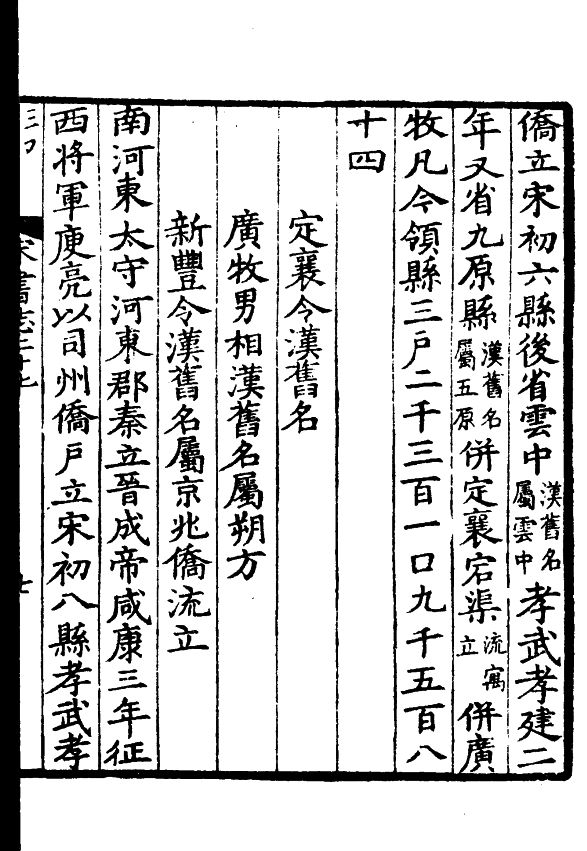 僑立宋初六縣後省雲中漢舊名屬雲中孝武孝建二
年又省九原縣漢舊名屬五原併定襄宕渠流寓立併廣
牧凡今領縣三戶二千三百一口九千五百八
十四
定襄令漢舊名
廣牧男相漢舊名屬朔方
新豐令漢舊名屬京兆僑流立
南河東太守河東郡秦立晉成帝咸康三年征
西將軍庾亮以司州僑戶立宋初八縣孝武孝
宋書志二十七
七